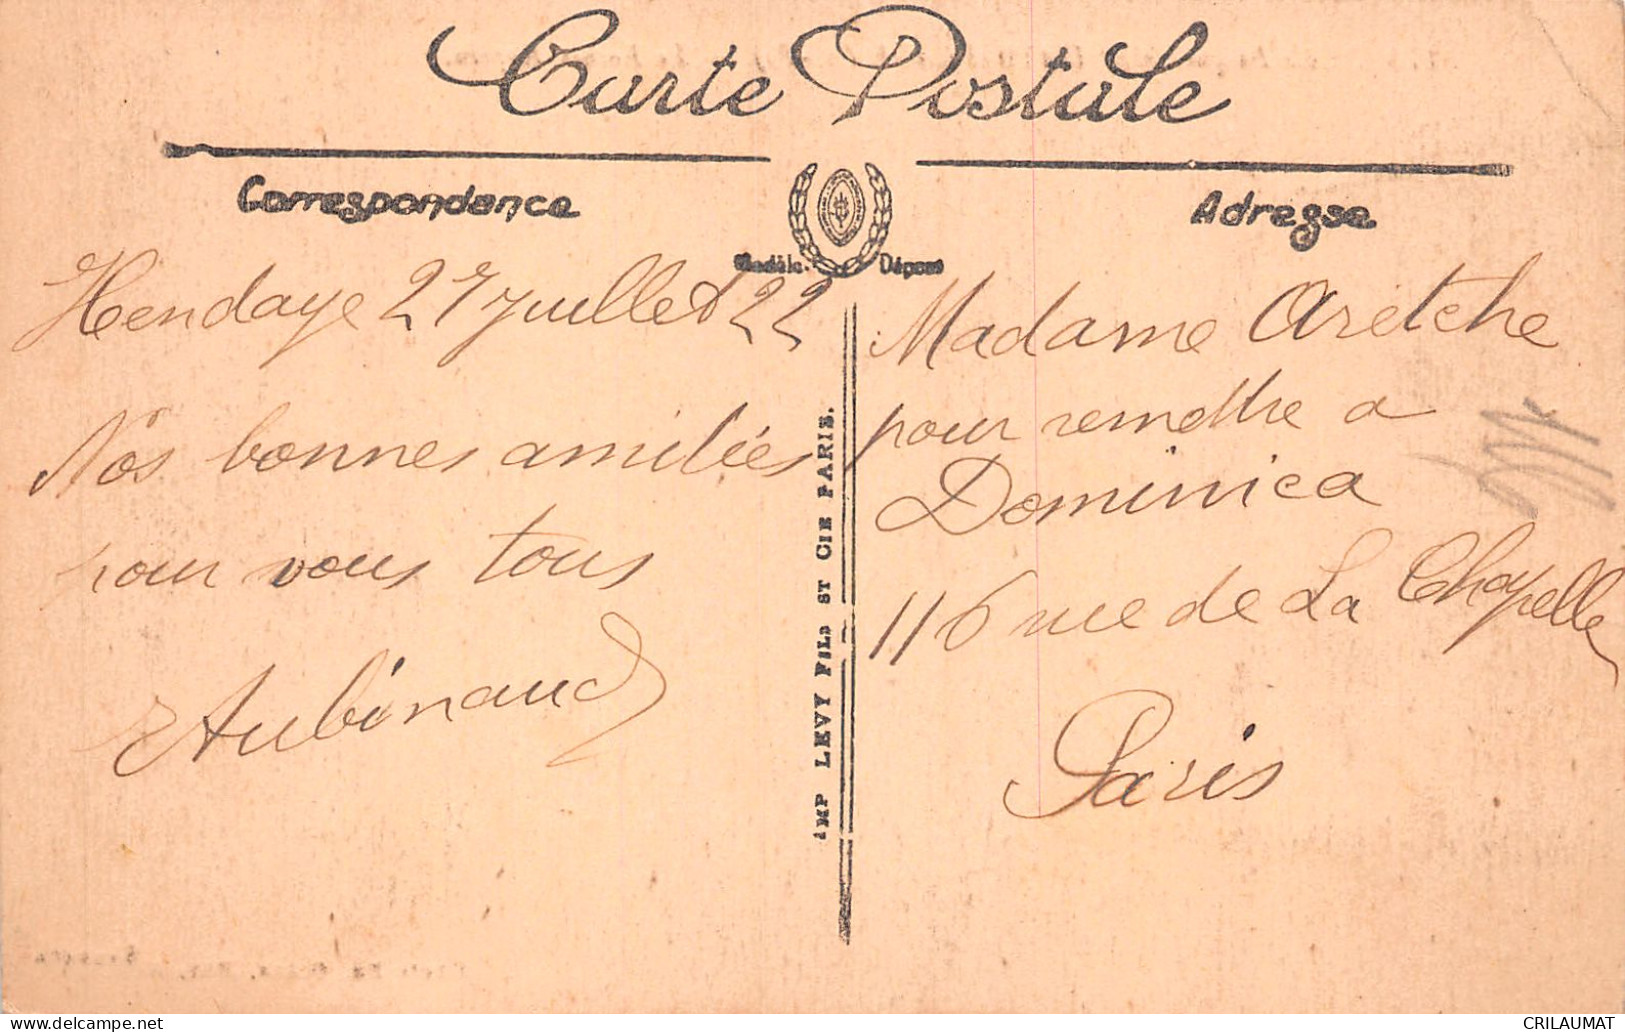 Carte Postale
Correspondance
Adresse
Modèle Déposé
Hendaye 27 juillet 22
Nos bonnes amitiés
pour vous tous
Aubinaud
IMP LEVY FILS ET CIE PARIS.
Madame Aretche
pour remettre a
Dominica
116 rue de La Chapelle
Paris
CRILAUMAT